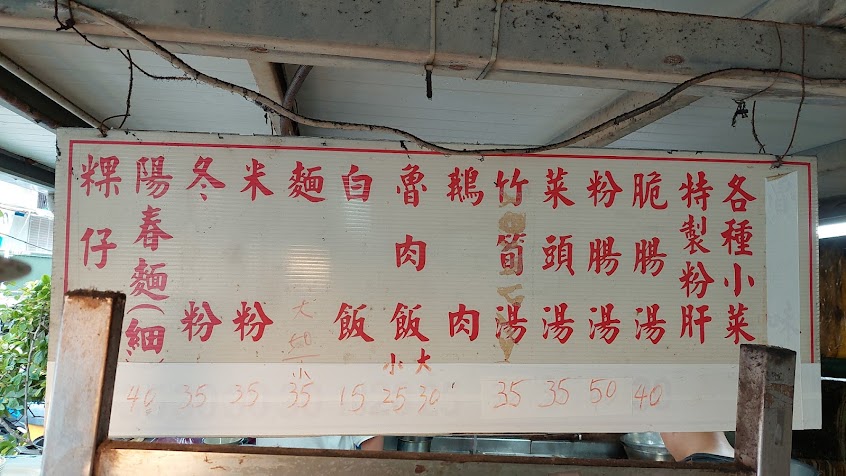 各種小菜
特製粉肝
脆腸湯 40
粉腸湯 50
菜頭湯 35
竹筍湯 35
鵝肉
魯肉飯 大30 小25
白飯 15
麵 大50 小35
米粉 35
冬粉 35
陽春麵(細 40
粿仔